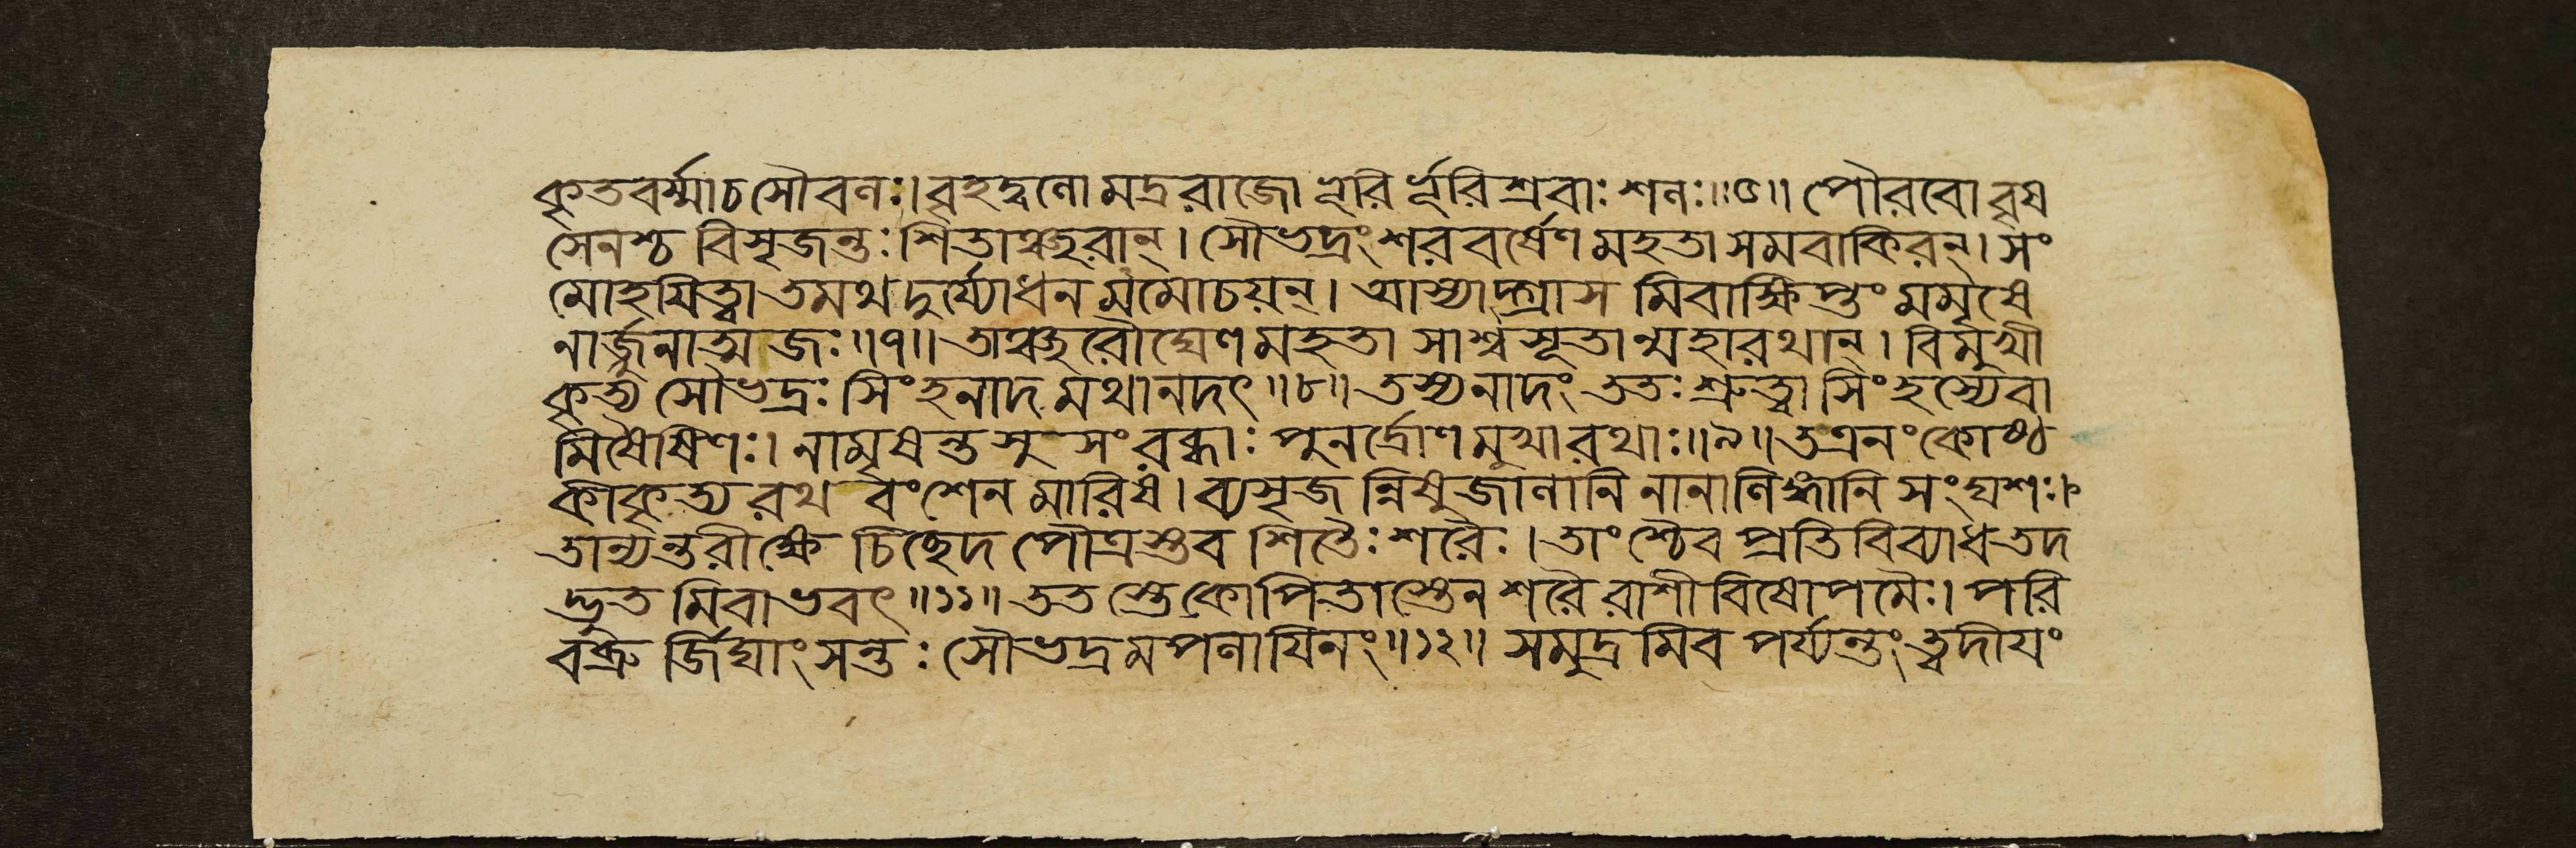 কৃতবর্ম্মাচসৌবলঃ।বৃহদ্বলো মদ্ররাজো ভূরি র্ভূরিশ্রবাঃ শলঃ॥৬॥ পৌরবো বৃষ
সেনশ্চ বিসৃজন্তঃ শিতাঞ্ছরান্। সৌভদ্রং শরবর্ষেণ মহতা সমবাকিরন্। সং
মোহয়িত্বা তমথ দুর্য্যোধন মমোচয়ন্। আস্যাদ্গ্রাস মিবাক্ষিপ্তং মমৃষে
নার্জ্জুনাত্মজঃ॥৭॥ তাঞ্ছরৌঘেণ মহতা সাশ্বসূতান্মহারথান্। বিমুখী
কৃত্য সৌভদ্রঃ সিংহনাদ মথানদৎ॥৮॥ তস্যনাদং ততঃ শ্রুত্বা সিংহস্যেবা
মিষৈষিণঃ। নামৃষন্ত সু সংরব্ধাঃ পুনর্দ্রোণ মুখারথাঃ॥৯॥ তএনংকোষ্ঠ
কীকৃত্য রথ বংশেন মারিষ। ব্যসৃজ ন্নিষুজালানি নানালিঙ্গানি সংঘশঃ।
তান্যন্তরীক্ষে চিচ্ছেদ পৌত্রস্তব শিতৈঃ শরৈঃ। তাংশ্চৈব প্রতিবিব্যাধ তদ
দ্ভুত মিবাভবৎ॥১১॥ তত স্তেকোপিতাস্তেন শরৈ রাশীবিষোপমৈঃ। পরি
বব্রু র্জিঘাংসন্তঃ সৌভদ্রমপলায়িনং॥১২॥ সমুদ্র মিব পর্য্যন্তং ত্বদীয়ং